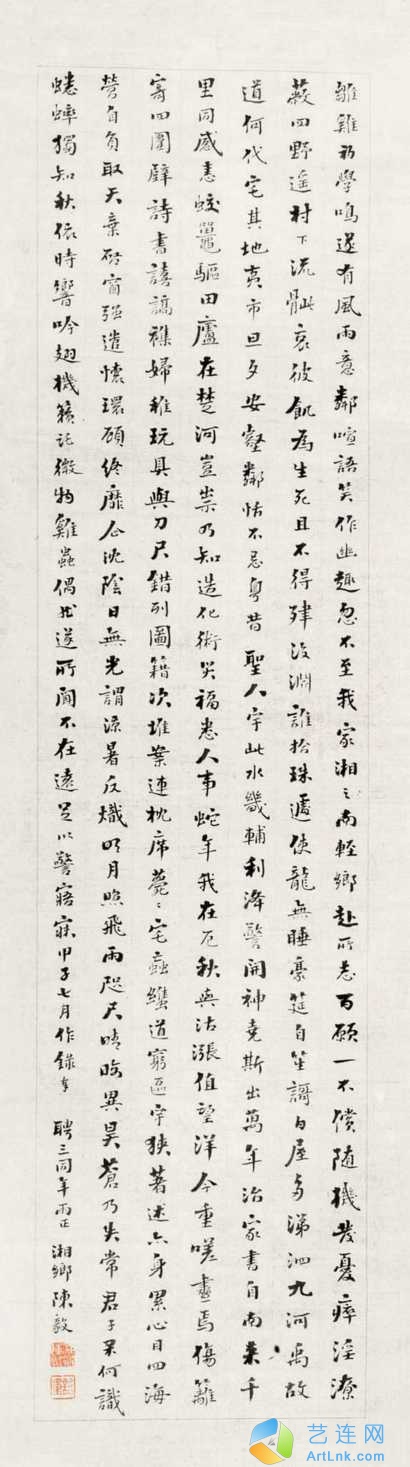 雛雞初學鳴遂有風雨意鄰喧語笑作幽趣忽不至我家湘之南輕鄉赴所志百願一不償随機發憂瘁淫潦
蔽四野遥村下流骴哀彼飢為生死且不得肂没淵誰拾珠遞使龍無睡豪筵自笙謌白屋多涕泗九河禹故
道何代宅其地賣市旦夕安壑鄰恬不忌粤昔聖人宇此水畿輔利洚警開神堯斯出萬年治家書自南来千
里同感恚蛟鼉驅田廬在楚河豈祟乃知造化術災福悉人事蛇年我在厄秋與沽漲值望洋今重嗟晝焉傷籬
寄四圍壁詩書謮譑襍婦稚玩具與刀尺錯列圖籍次堆案連枕席薨薨宅蝱蠛道窮區宇狹著述亦身累心目四海
營自負取天棄啟窗强遣懷環顧終靡企沈陰日無光謂涼暑反熾明月照飛雨咫尺晴晦異昊蒼乃失常君子果何識
蟋蟀獨知秋依時響吟翅機籟託微物雞蟲偶哉遂所聞不在遠足以警寤寐甲子七月作錄奉 聘三同年雨正 湘鄉陳毅
艺连网
ArtLnk.com